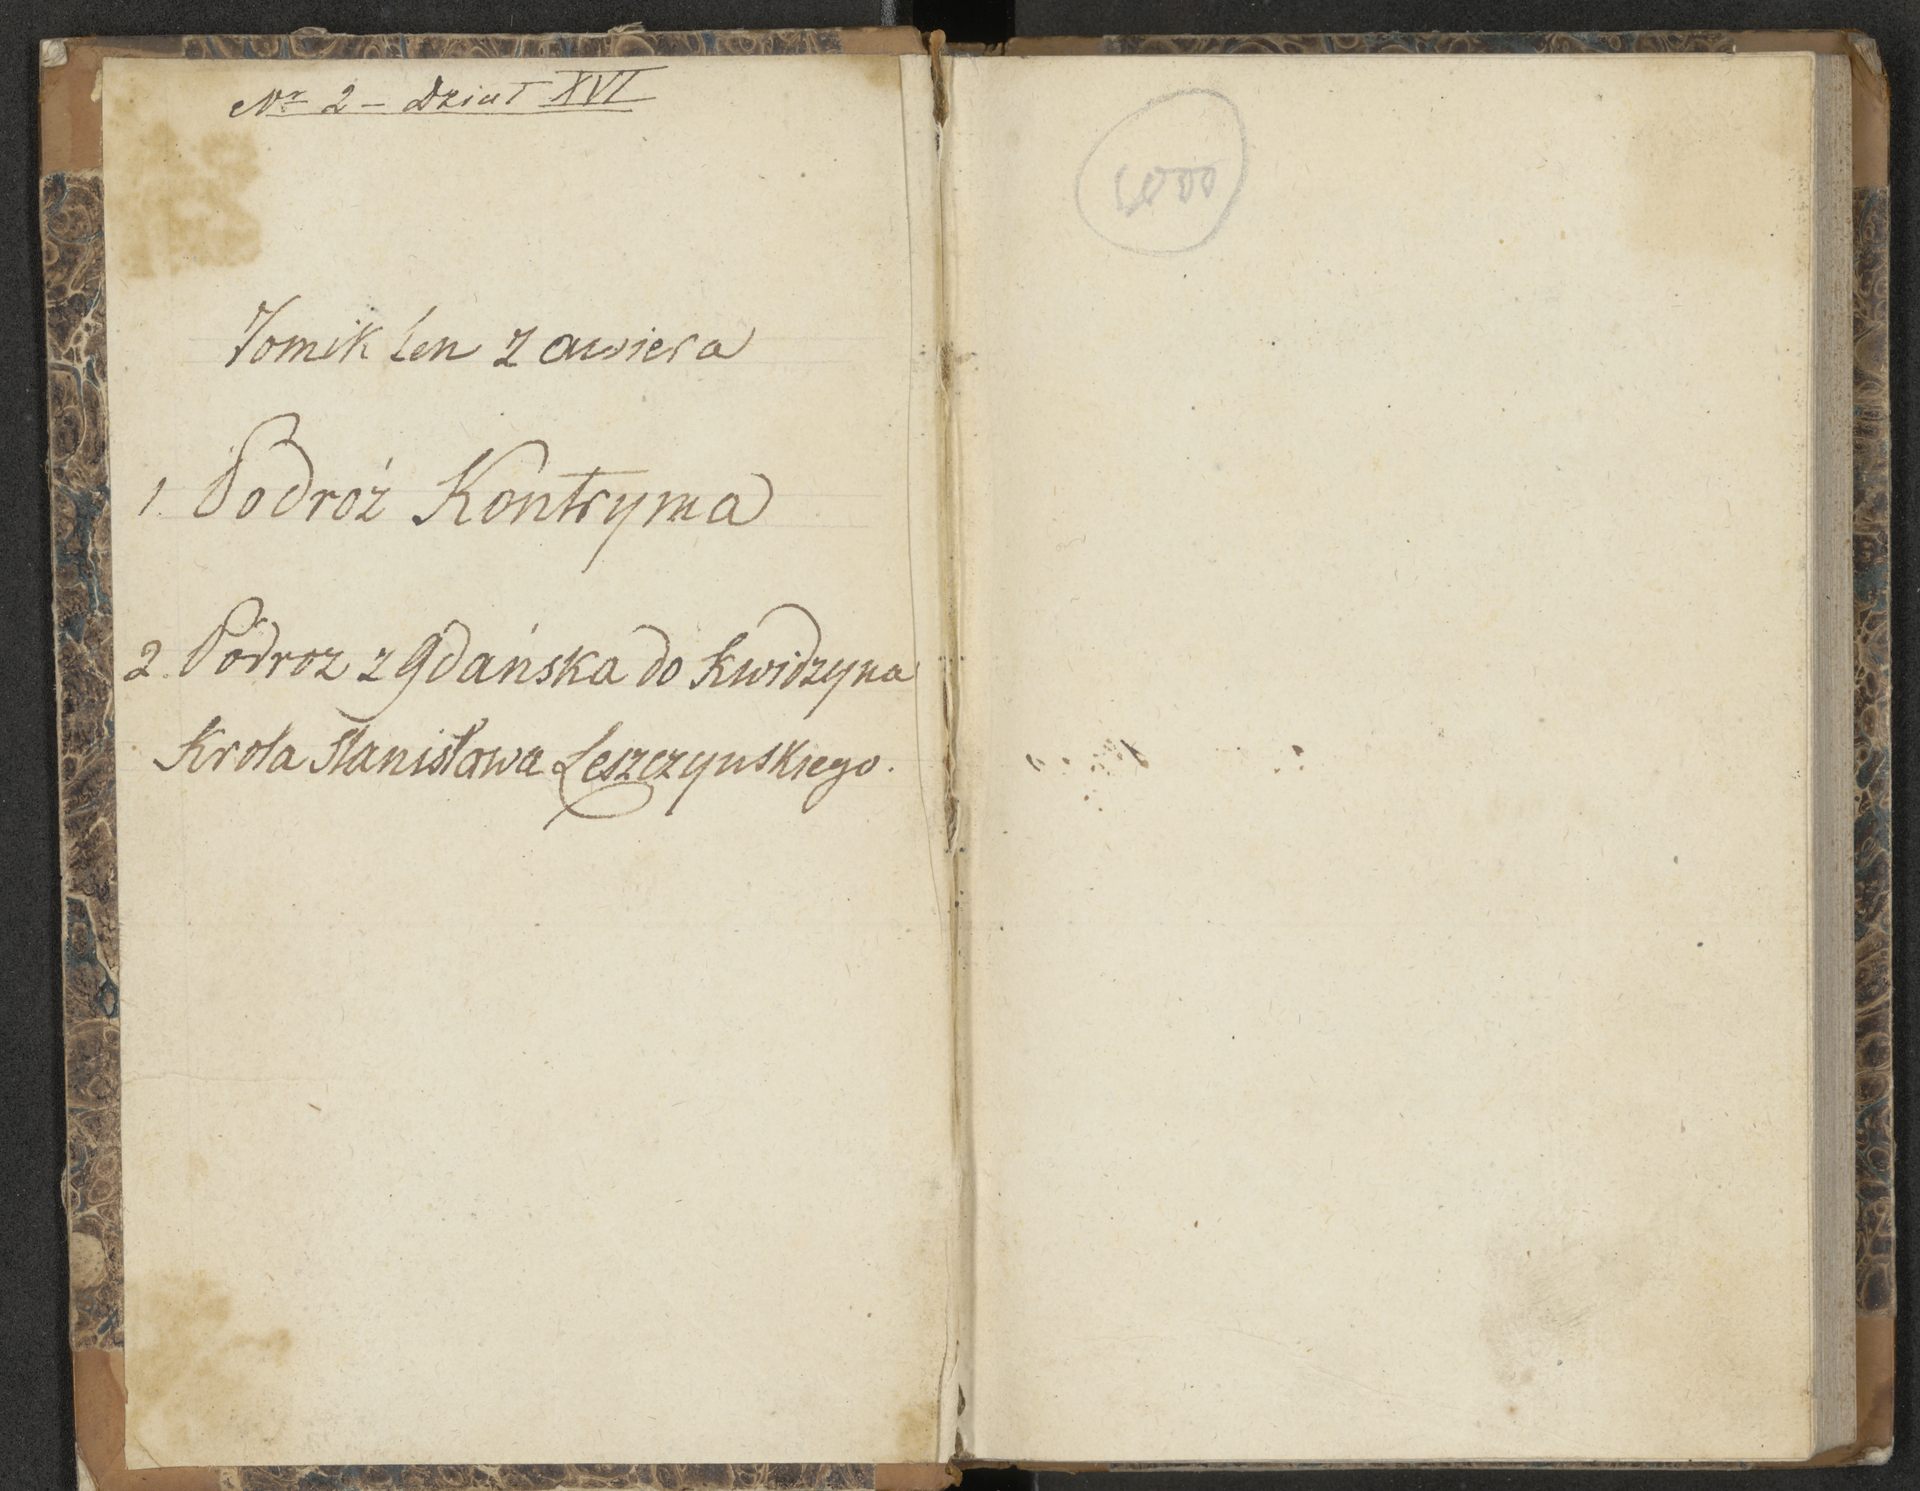 Nr 2 – Dział XVI
Tomik ten zawiera
1. Podróż Kontryma
2. Podroz z Gdańska do Kwidzyna
Krola Stanisława Leszczynskiego.